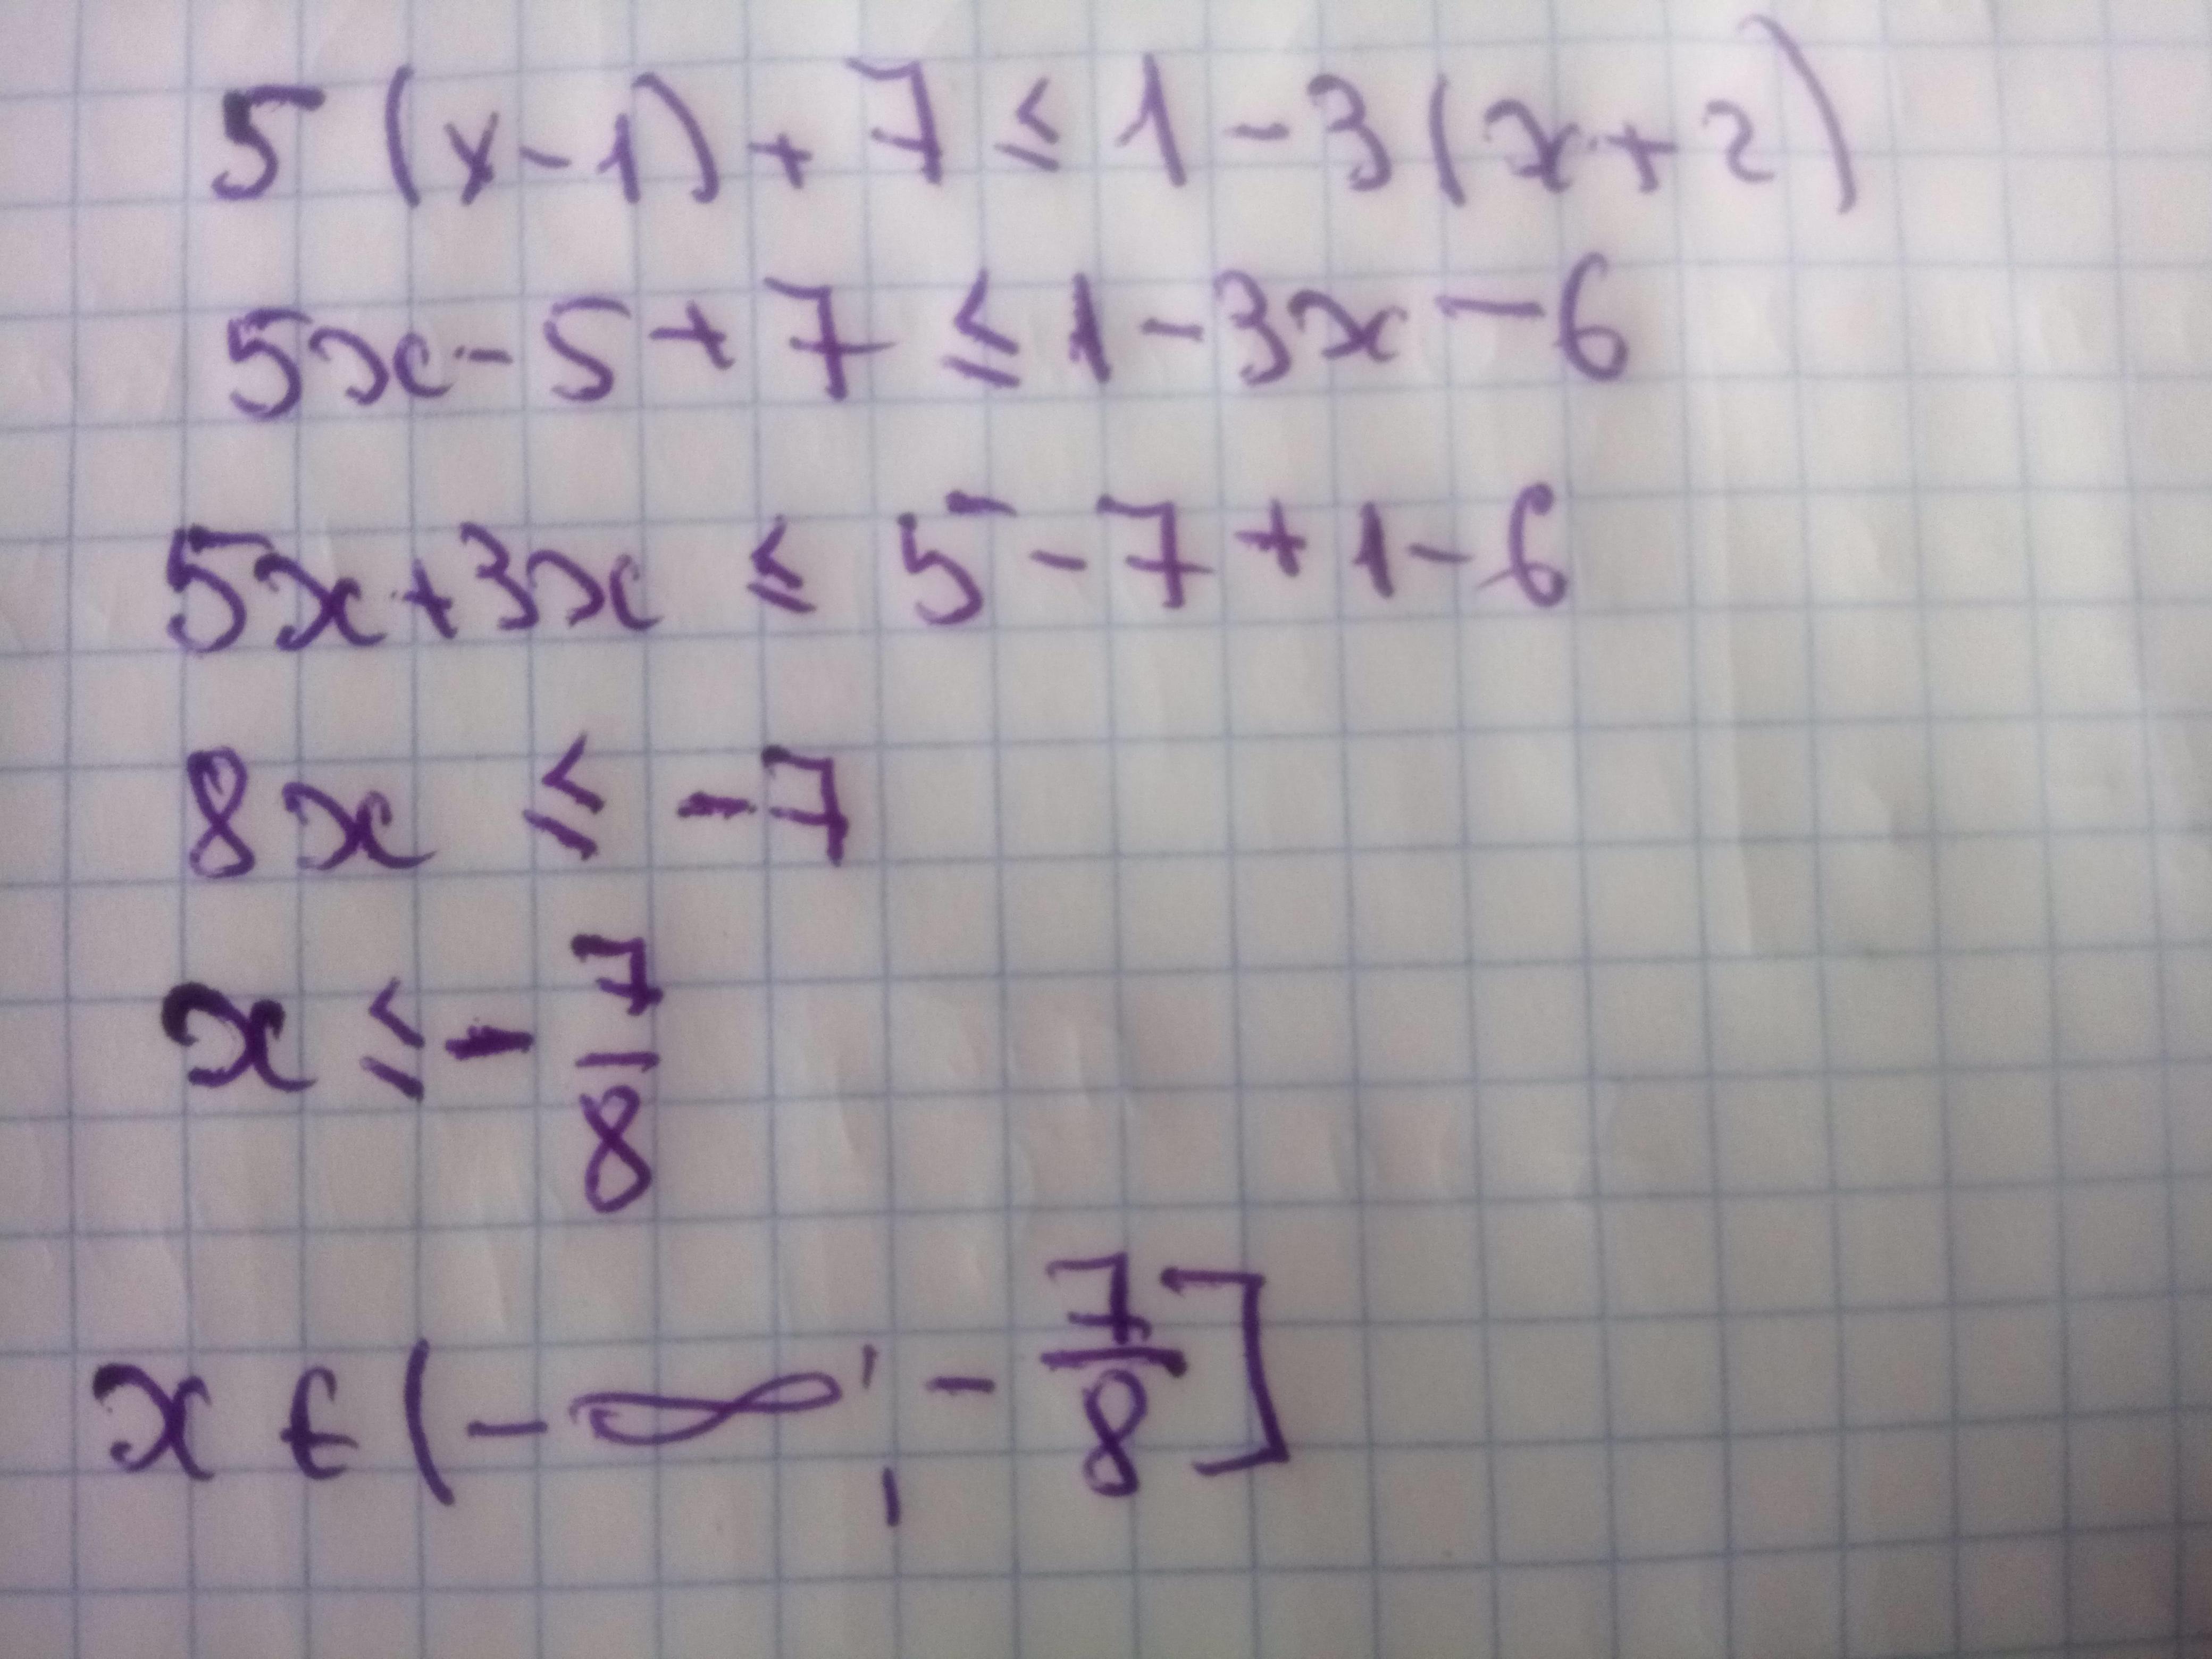 5(x-1)+7≤1-3(x+2)
5x-5+7≤1-3x-6
5x+3x≤5-7+1-6
8x≤-7
x≤-7/8
x∈(-∞;-7/8]